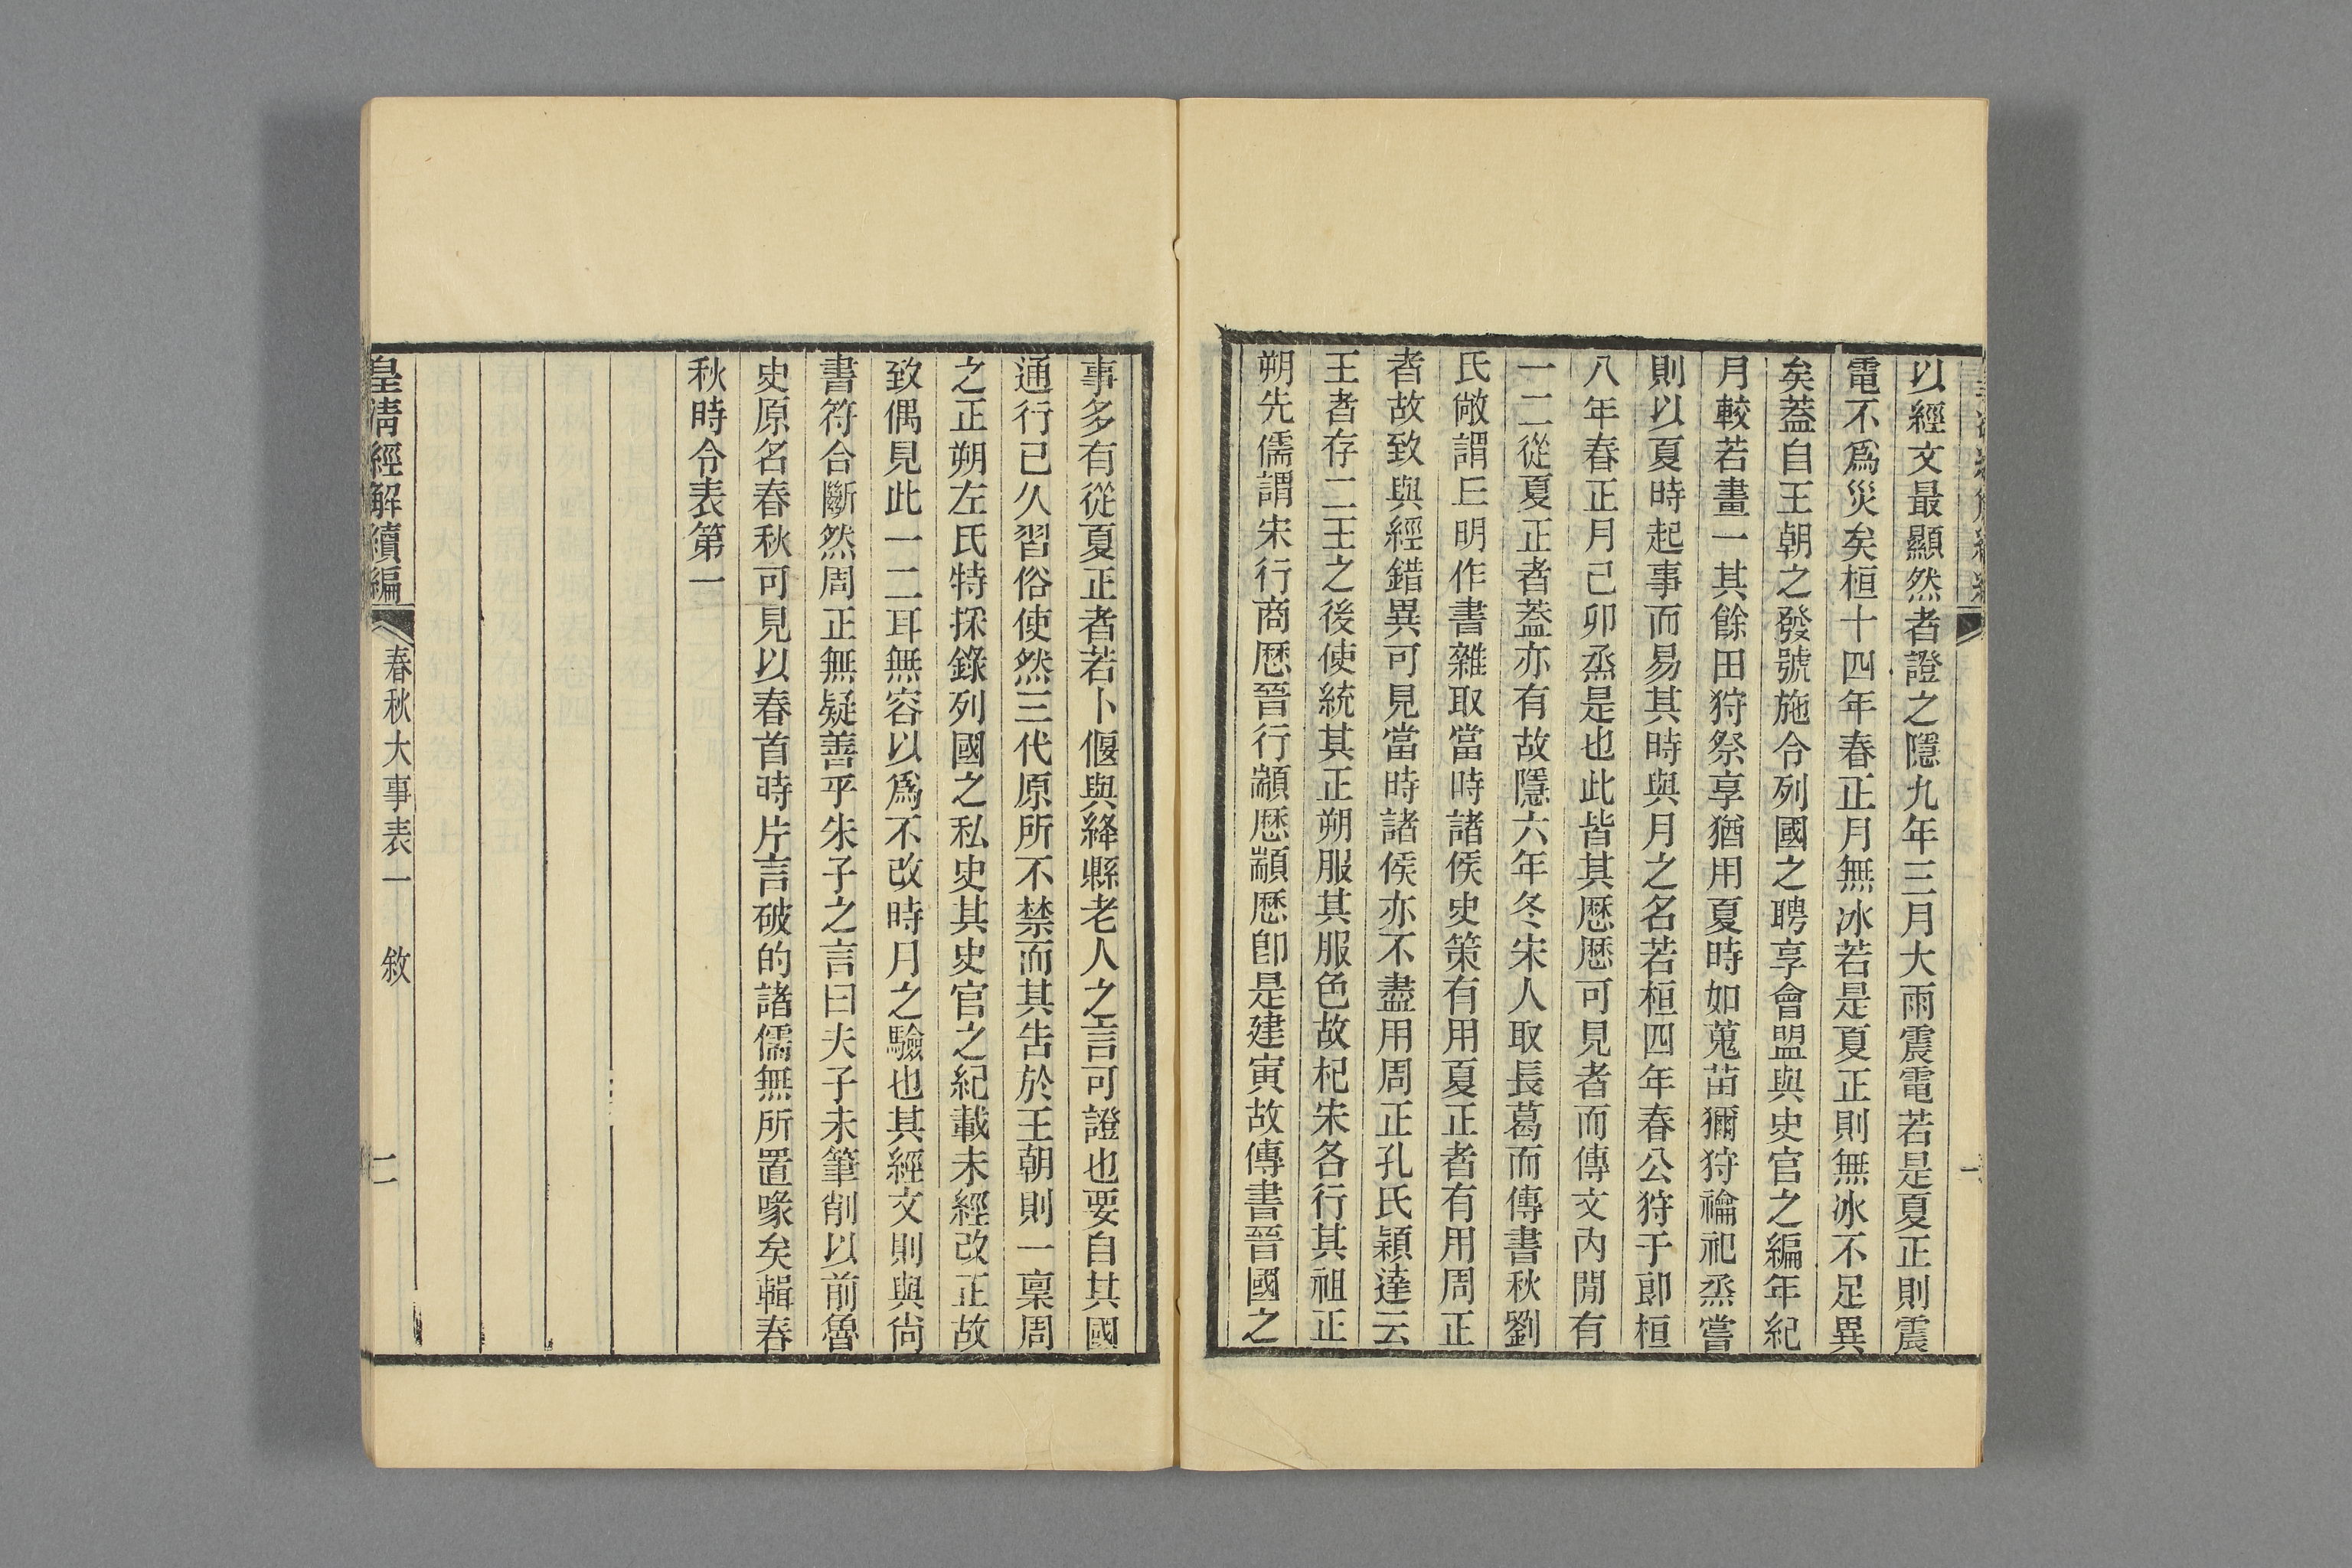 以經文最顯然者證之隱九年三月大雨震電若是夏正則震
電不爲災矣桓十四年春正月無冰若是夏正則無冰不足異
矣蓋自王朝之發號施令列國之聘享會盟與史官之編年紀
月較若畫一其餘田狩祭享猶用夏時如蒐苗獮狩禴祀烝嘗
則以夏時起事而易其時與月之名若桓四年春公狩于郎桓
八年春正月己卯烝是也此皆其歷歷可見者而傳文內閒有
一二從夏正者蓋亦有故隱六年冬宋人取長葛而傳書秋劉
氏敞謂𠀉明作書雜取當時諸侯史策有用夏正者有用周正
者故致與經錯異可見當時諸侯亦不盡用周正孔氏穎達云
王者存二王之後使統其正朔服其服色故杞宋各行其祖正
朔先儒謂宋行商歷晉行顓歷顓歷卽是建寅故傳書晉國之
事多有從夏正者若卜偃與絳縣老人之言可證也要自其國
通行已久習俗使然三代原所不禁而其告於王朝則一稟周
之正朔左氏特採錄列國之私史其史官之紀載未經改正故
致偶見此一二耳無容以爲不改時月之驗也其經文則與尙
書符合斷然周正無疑善乎朱子之言曰夫子未筆削以前魯
史原名春秋可見以春首時片言破的諸儒無所置喙矣輯春
秋時令表第一
皇淸經解續編
春秋大事表一 敘
二